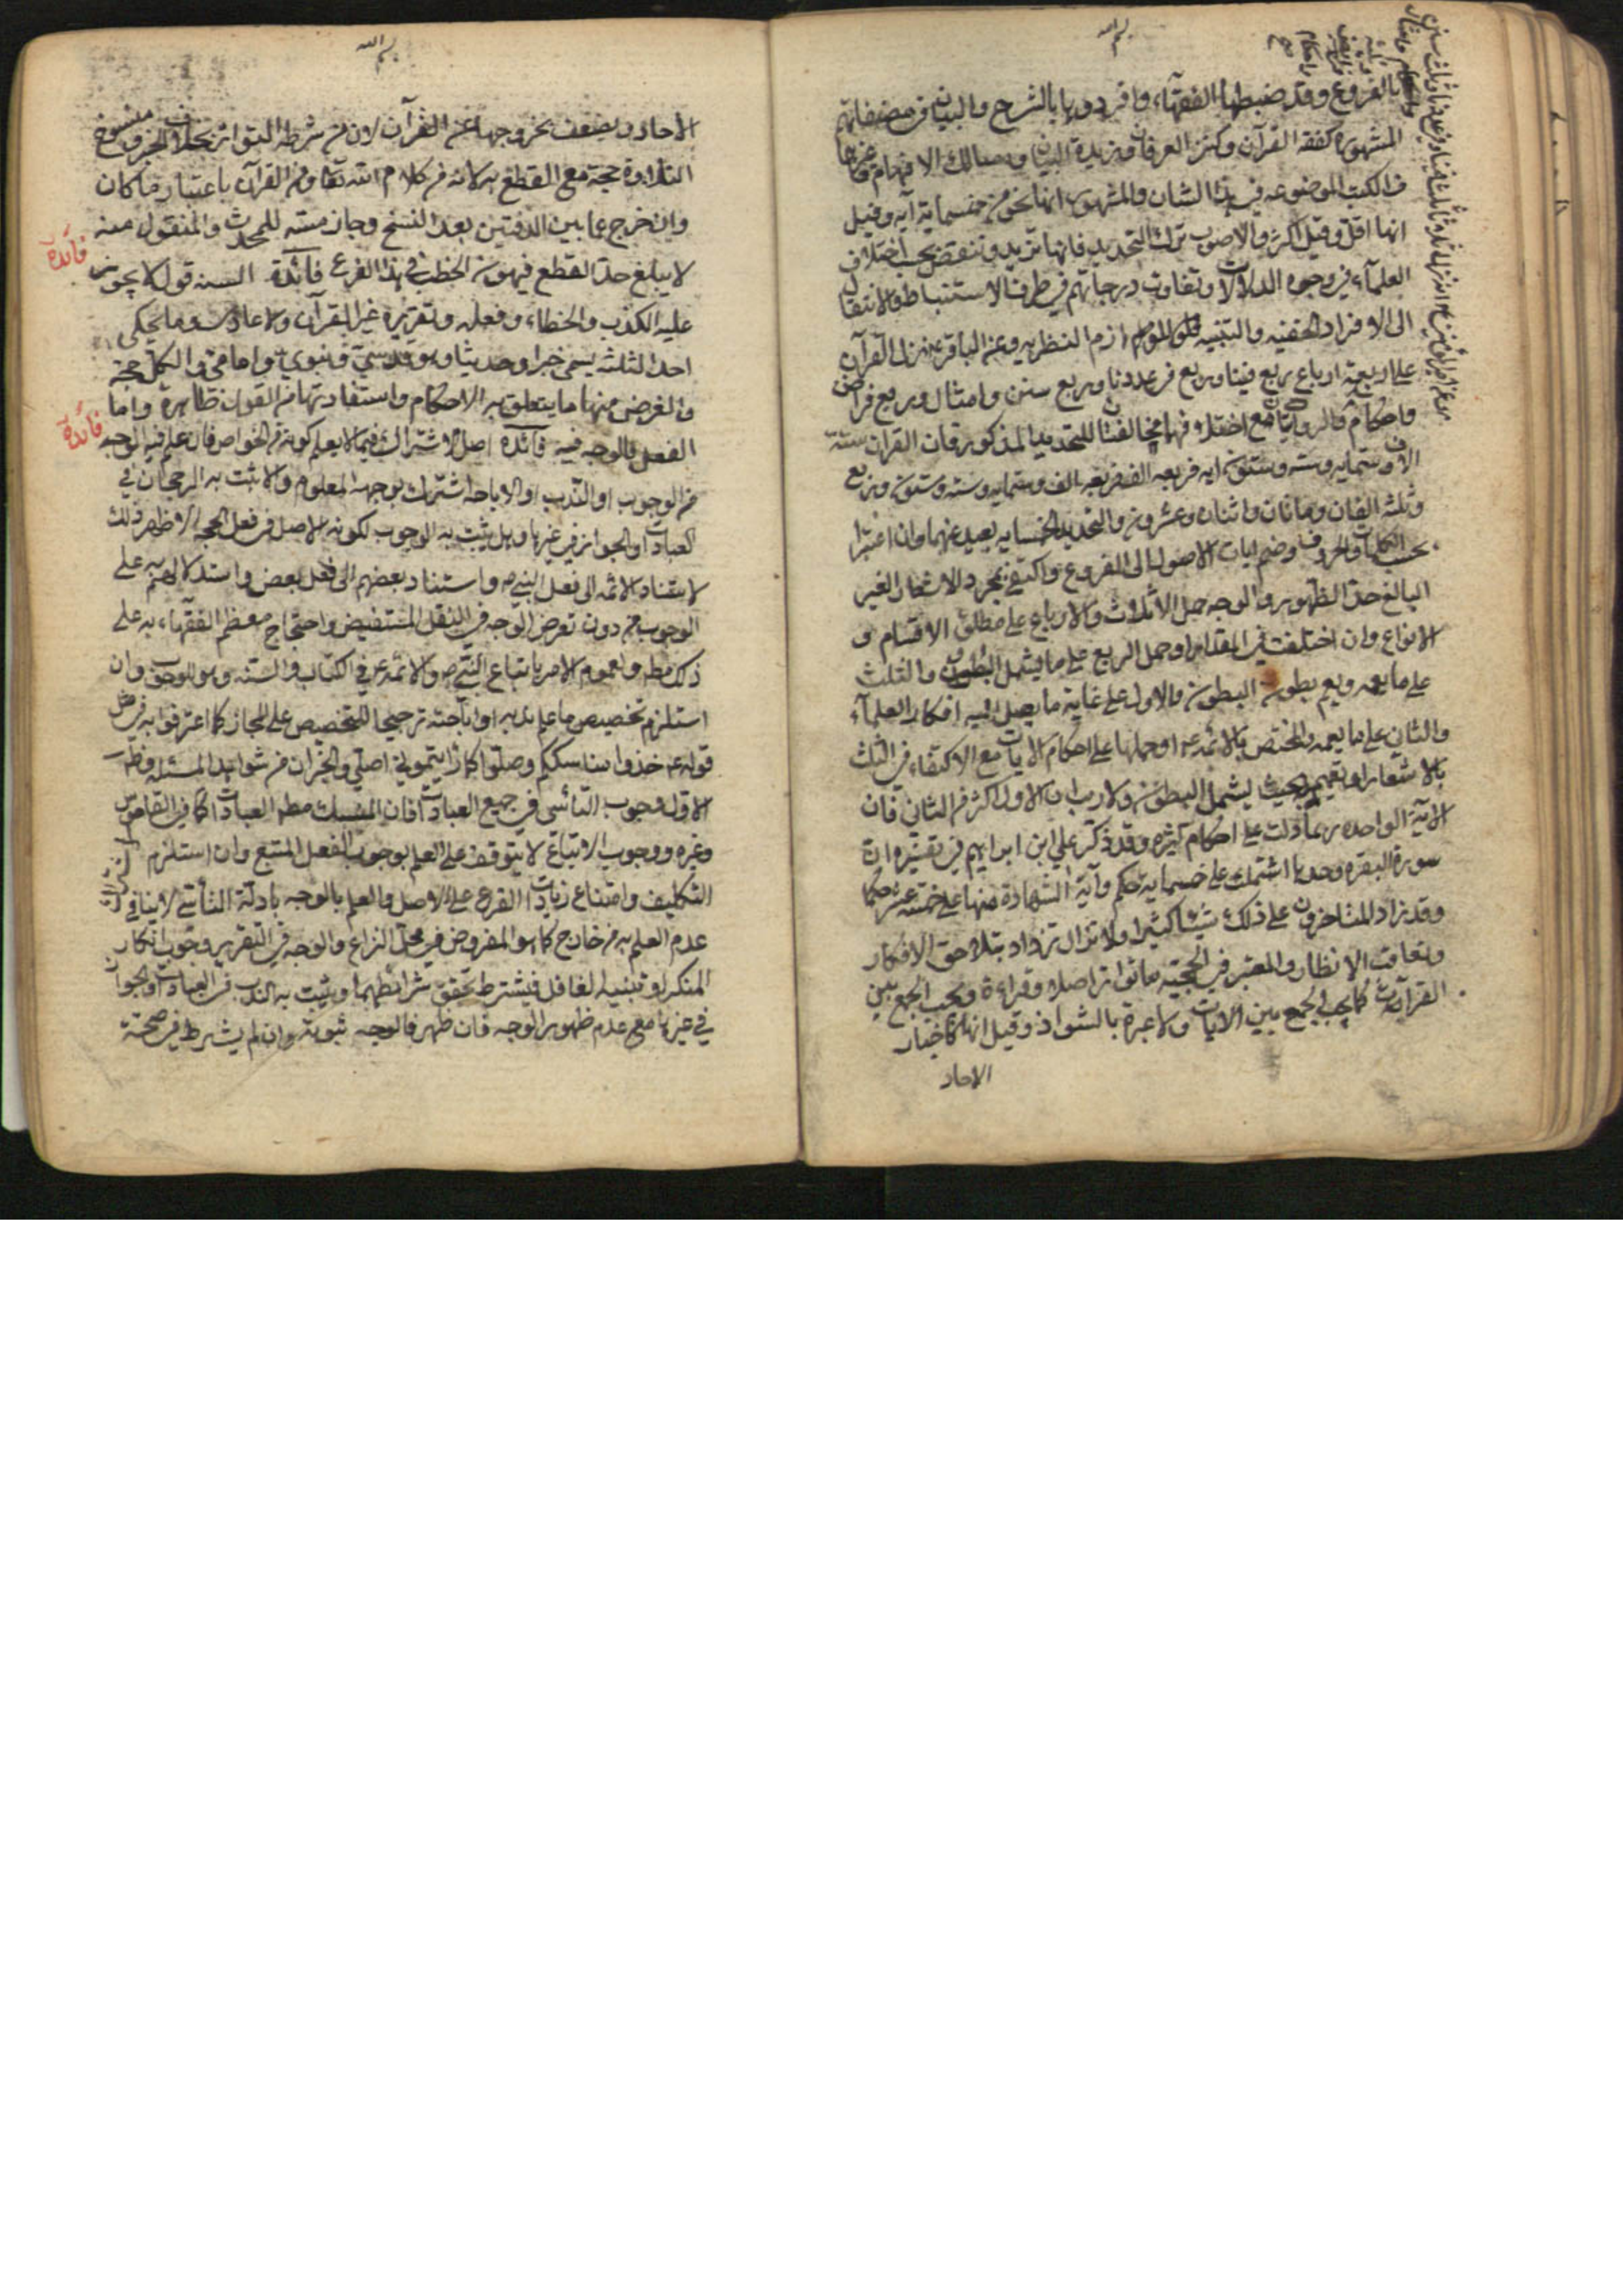 بسم الله
بالفروع وقد ضبطها الفقهآء وافردوها بالشرح والبيان في مصنفاتهم
المشهورة كفقه القرآن وكنز العرفان وزبدة البيان ومسالك الافهام وغيرها
من الكتب الموضوعه في هذا الشان والمشهور انها نحو من خمسماية آيه وقيل
انها اقل وقيل اكثر والاصوب ترك التحديد فانها تزيد وتنقص بحسب اختلاف
العلمآء في وجوه الدلالات وتفاوت درجاتهم في طرف الاستنباط والانتقال
الى الافراد الخفيه والتنبيه للوازم النظريه وعن الباقر ع نزل القرآن
على اربعة ارباع ربع فينا وربع في عدونا وربع سنن وامثال وربع فرائض
واحكام والروايتان مع اختلافهما مخالفتان للتحديد المذكور فان القران ستة
الاف وستمايه وسته وستون ايه فربعه الف وستمايه وسته وستون وربع
وثلثه الفان ومائتان واثنان وعشرون والتحديد بالخمسمايه بعيد عنهما وان اعتبرا
بحسب الكلمات والحروف وضم ايات الاصول الى الفروع واكتفى بمجرد الاشعار الغير
البالغ حد الظهور والوجه حمل الاثلاث والارباع على مطلق الاقسام و
الانواع وان اختلفت في المقدار او حمل الربع على ما يشمل البطون والثلث
على ما يعمه ويعم بطون البطون والاول على غاية ما يصل اليه افكار العلمآء
والثاني على ما يعمه والمختص بالائمه ع او حملها على احكام الايات مع الاكتفاء في الثلث
بالاشعار او تعميمه بحيث يشمل البطون ولا ريب ان الاول اكثر من الثاني فان
الاية الواحده ربما دلت على احكام كثيره وقد ذكر علي ابن ابراهيم في تفسيره ان
سورة البقره وحدها اشتملت على خمسماية حكم وآية الشهادة منها على خمسة عشر حكما
وقد زاد المتاخرون على ذلك شيئا كثيرا ولا تزال تزداد بتلاحق الافكار
وتعاقب الانظار والمعتبر في الحجيه ما تواتر اصلا وقراءة ويجب الجمع بين
القرآءات كما يجب الجمع بين الايات ولا عبرة بالشواذ وقيل انها كاخبار
الاحاد
بسم الله
الاحاد ويضعف بخروجها عن القرآن لان من شرطه التواتر بخلاف الخبر ومنسوخ
التلاوة حجة مع القطع به لانه من كلام الله تعا ومن القرآن باعتبار ما كان
وان خرج عما بين الدفتين بعد النسخ وجاز مسه للمحدث والمنقول منه
لا يبلغ حد القطع فيهون الخطب في هذا الفرع فائدة السنه قول لا يجوز
فائدة
عليه الكذب والخطاء وفعله وتقريره غير القرآن ولا عادي وما يحكي
احد الثلثه يسمى خبرا وحديثا وهو قدسي ونبوي وامامي والكل حجة
والغرض منها ما يتعلق به الاحكام واستفادتها من القول ظاهرة واما
الفعل فالوجه فيه فائدة اصل الاشتراك فيما لا يعلم كونه من الخواص فان علم فيه الوجه
فائدة
من الوجوب او الندب او الاباحه اشترك بوجهه المعلوم والا ثبت به الرجحان في
العبادات والجواز في غيرها وهل يثبت به الوجوب لكونه الاصل في فعل الحجه الاظهر ذلك
لاستناد الائمه الى فعل النبي ص واستناد بعضهم الى فعل بعض واستدلالهم به على
الوجوب من دون تعرض للوجه في النقل المستفيض واحتجاج معظم الفقهاء به على
ذلك مطه ولعموم الامر باتباع النبي ص والائمه ع في الكتاب والسنه وهو للوجوب وان
استلزم تخصيص ما علم ندبه او اباحته ترجيحا للتخصيص على المجاز كما اعترفوا به في مثل
قوله ع خذوا مناسككم وصلوا كما رايتموني اصلي والخبران من شواهد المسئله وظهر
الاول وجوب التأسي في جميع العبادات فان المنسك مطه العبادات كما في القاموس
وغيره ووجوب الاتباع لا يتوقف على العلم بوجوب الفعل المتبع وان استلزم
التكليف وامتناع زيادة الفرع على الاصل والعلم بالوجه بادلة التأسي لا ينافي
عدم العلم به من خارج كما هو المفروض في محل النزاع والوجه في التقرير وجوب انكار
المنكر او تنبيه الغافل فيشترط تحقق شرائطهما ويثبت به الندب في العبادات والجواز
في غيرها مع عدم ظهور الوجه فان ظهر فالوجه ثبوته وان لم يشترط في صحته